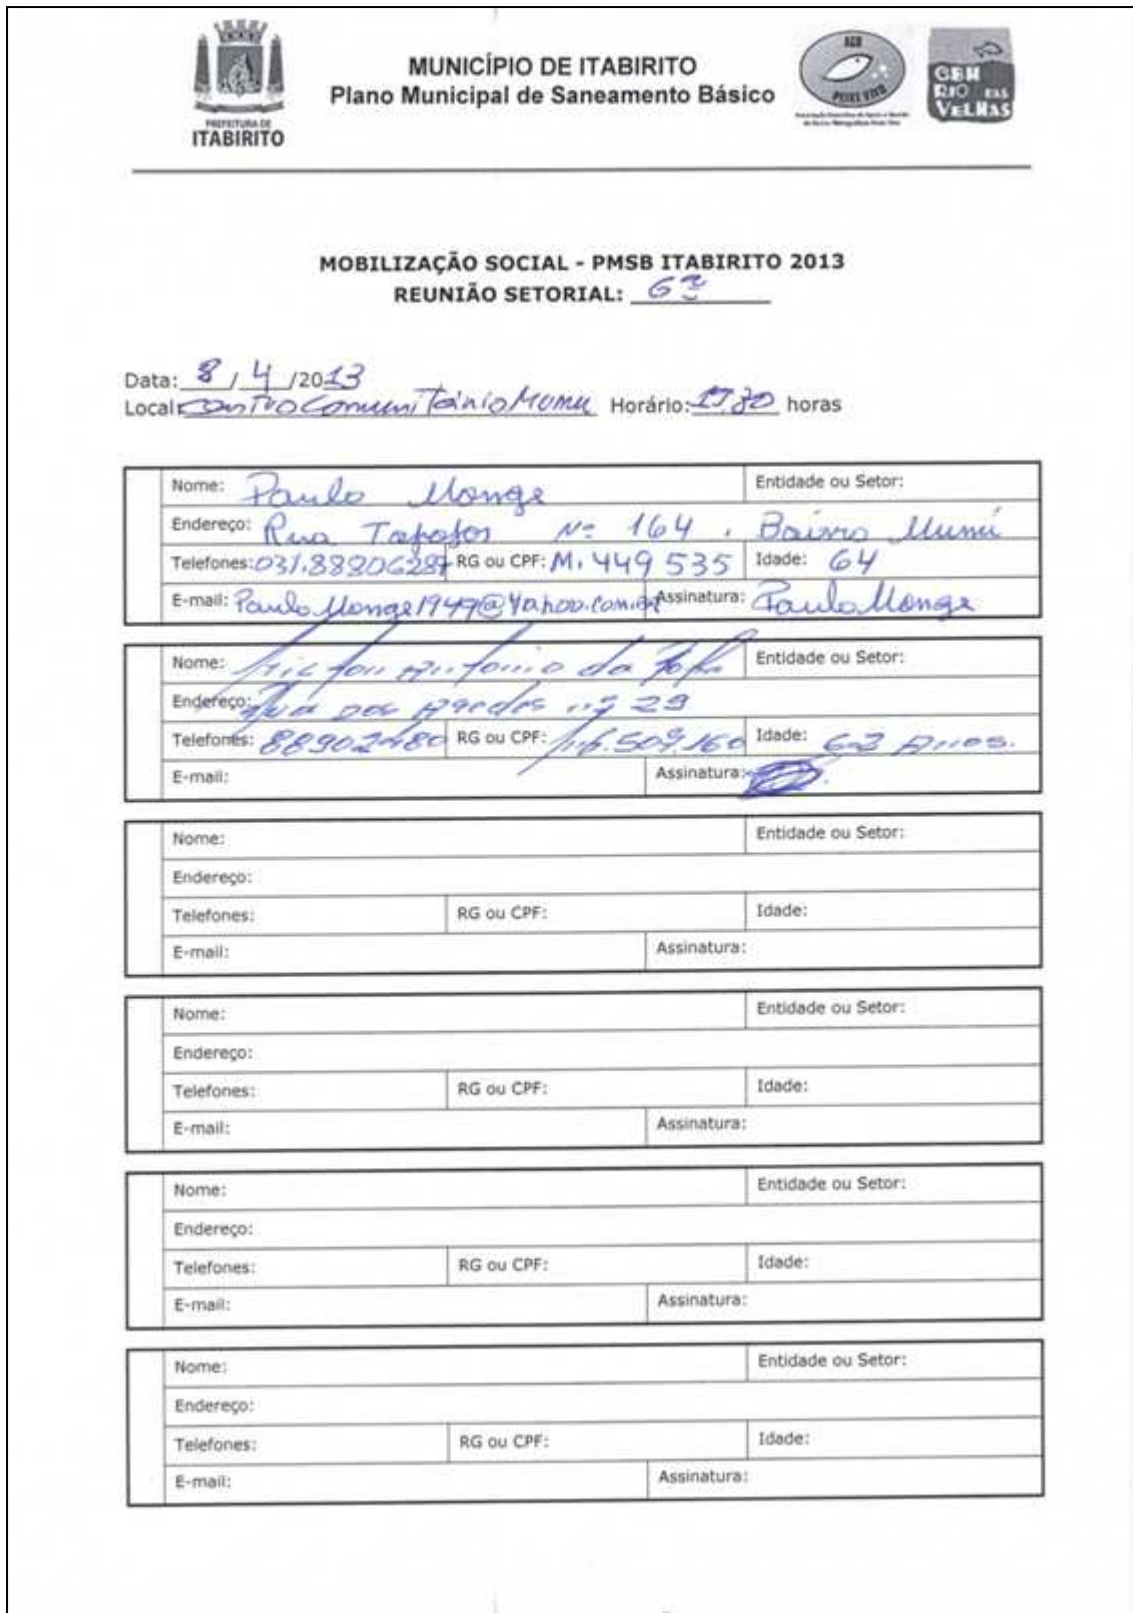 MUNICÍPIO DE ITABIRITO
Plano Municipal de Saneamento Básico
PREFEITURA DE
ITABIRITO
AGB
PEIXE VIVO
CBH
RIO DAS
VELHAS
MOBILIZAÇÃO SOCIAL - PMSB ITABIRITO 2013
REUNIÃO SETORIAL: 6ª
Data: 8 / 4 /2013
Local: Comunitário Mumu Horário: horas
Nome: Paulo Monge Entidade ou Setor:
Endereço: Rua Nº 164 . Bairro Mumú
Telefones: RG ou CPF: M. 449 535 Idade: 64
E-mail: Assinatura: Paulo Monge
Nome: Antonio da Entidade ou Setor:
Endereço: Rua Dos nº 29
Telefones: 88902480 RG ou CPF: Idade: 62 Anos.
E-mail: Assinatura:
Nome: Entidade ou Setor:
Endereço:
Telefones: RG ou CPF: Idade:
E-mail: Assinatura:
Nome: Entidade ou Setor:
Endereço:
Telefones: RG ou CPF: Idade:
E-mail: Assinatura:
Nome: Entidade ou Setor:
Endereço:
Telefones: RG ou CPF: Idade:
E-mail: Assinatura:
Nome: Entidade ou Setor:
Endereço:
Telefones: RG ou CPF: Idade:
E-mail: Assinatura: